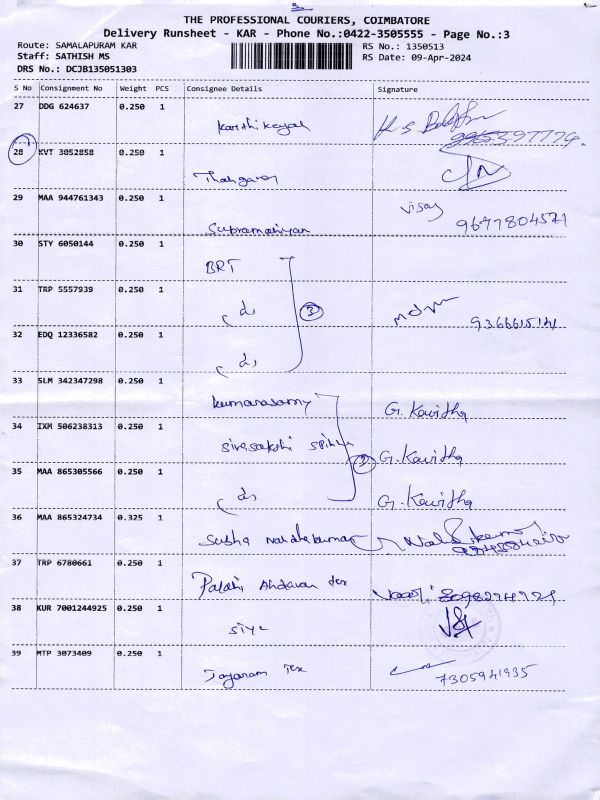 THE PROFESSIONAL COURIERS, COIMBATORE
Delivery Runsheet - KAR - Phone No.:0422-3505555 - Page No.:3
Route: SAMALAPURAM KAR
RS No.: 1350513
Staff: SATHISH MS
RS Date: 09-Apr-2024
DRS No.: DCJB135051303
S No Consignment No Weight PCS Consignee Details Signature
27 DDG 624637 0.250 1
Karthikeyan
28 KVT 3052858 0.250 1
29 MAA 944761343 0.250 1
Vijay
9677804571
Supramaniyan
30 STY 6050144 0.250 1
BRT
31 TRP 5557939 0.250 1
3
32 EDQ 12336582 0.250 1
33 SLM 342347298 0.250 1
Kumarasamy
G. Kavitha
34 IXM 506238313 0.250 1
sivasakthi
G. Kavitha
35 MAA 865305566 0.250 1
G. Kavitha
36 MAA 865324734 0.325 1
Nandhakumar
37 TRP 6780661 0.250 1
Palani Andavar tex
38 KUR 7001244925 0.250 1
39 MTP 3073409 0.250 1
Jayaram Tex
7305941935